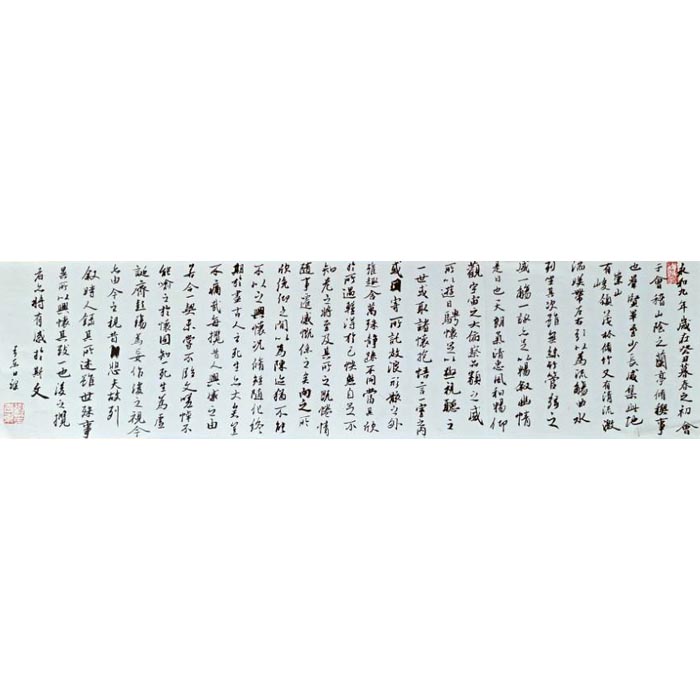 永和九年歲在癸丑暮春之初會
于會稽山陰之蘭亭脩禊事
也羣賢畢至少長咸集此地
崇山
有峻領茂林脩竹又有清流激
湍暎帶左右引以為流觴曲水
列坐其次雖無絲竹管弦之
盛一觴一詠亦足以暢敘幽情
是日也天朗氣清惠風和暢仰
觀宇宙之大俯察品類之盛
所以遊目騁懷足以極視聽之
一世或取諸懷抱悟言一室之內
或因寄所託放浪形骸之外
雖趣舍萬殊靜躁不同當其欣
於所遇暫得於己快然自足不
知老之將至及其所之既惓情
隨事遷感慨係之矣向之所
欣俛仰之間以為陳迹猶不能
不以之興懷況脩短隨化終
期於盡古人云死生亦大矣豈
不痛哉每攬昔人興感之由
若合一契未嘗不臨文嗟悼不
能喻之於懷固知一死生為虛
誕齊彭殤為妄作後之視今
亦由今之視昔悲夫故列
敘時人錄其所述雖世殊事
異所以興懷其致一也後之攬
者亦將有感於斯文